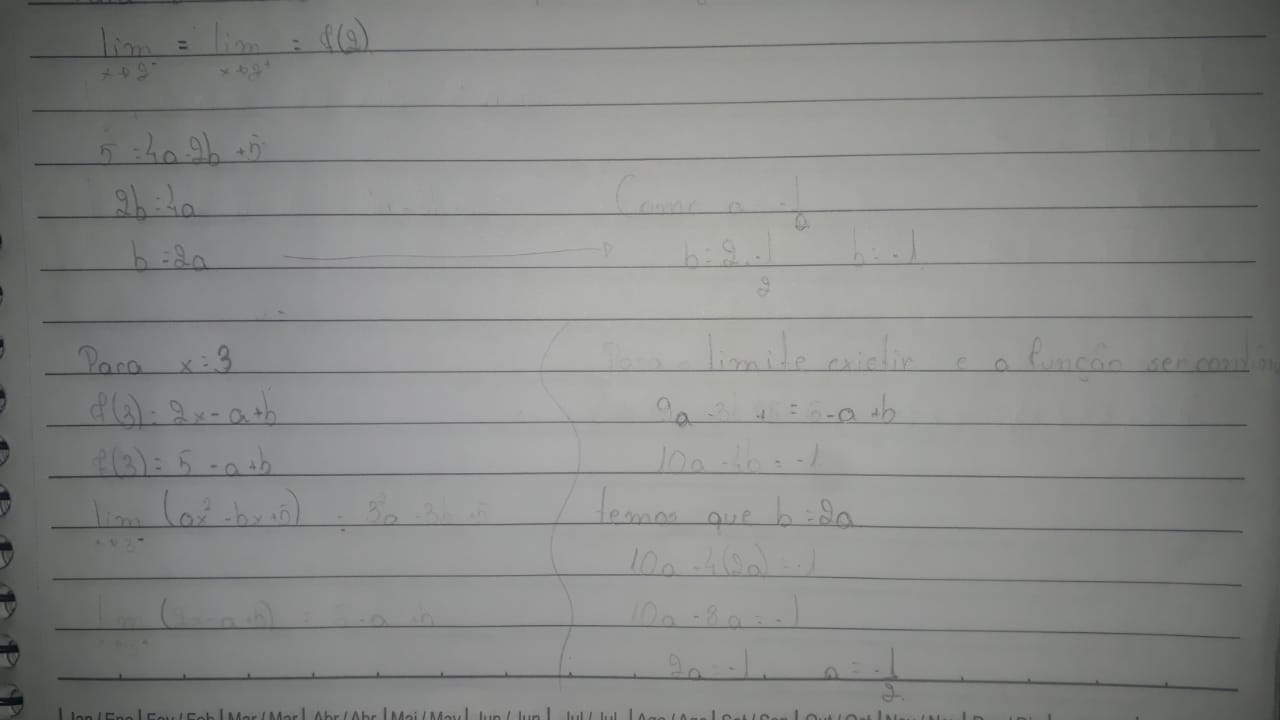 lim = lim = f(2)
x→2⁻ x→2⁺
5 = 4a - 2b + 5
2b = 4a
b = 2a
Como a = -1/2
b = 2 . -1/2 b = -1
Para x = 3
f(3) = 2x - a + b
f(3) = 5 - a + b
lim (ax² - bx + 5) = 3²a - 3b + 5
x→3⁻
lim (2x - a + b) = - a + b
Para o limite existir e a função ser
9a - 3b + 5 = 5 - a + b
10a - 4b = -1
temos que b = 2a
10a - 4(2a) = -1
10a - 8a = -1
2a = -1 a = -1/2
Jan / Ene | Fev / Feb | Mar / Mar | Abr / Abr | Mai / May | Jun / Jun | Jul / Jul | Ago / Ago | Set / Sep | Out / Oct | Nov / Nov